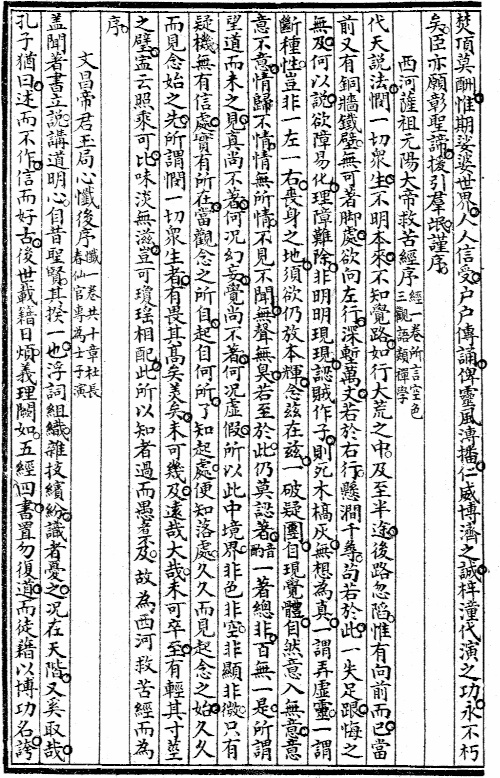 焚頂莫酬惟期娑婆世界人人信受戶戶傳誦俾靈風溥播仁威博濟之誠梓潼代演之功永不朽
矣臣亦願彰聖諦援引羣氓謹序
西河薩祖元陽大帝救苦經序 經一卷所言空色三觀語類禪學
代天說法憫一切眾生不明本來不知覺路如行大荒之中及至半途後路忽陷惟有向前而已當
前又有銅牆鐵壁無可著脚處欲向左行深塹萬丈若於右行懸澗千尋茍若於此一失足跟悔之
無及何以說欲障易化理障難除非明明現現認賊作子則死木槁灰無想為真一謂弄虛靈一謂
斷種性豈非一左一右畏身之地須欲仍放本輝念茲在茲一破疑團自現覺體自然意入無意意
意不意情歸不情情無所情不見不聞無聲無臭若至於此仍莫認著音酌一著總非百無一是所謂
望道而未之見真尚不著何况幻妄覺尚不著何况虛假所以此中境界非色非空非顯非微只有
疑機無有信處實有所在當觀念之所自起自何所了知起處便知落處久久而見起念之始久久
而見念始之先所謂憫一切眾生者有畏其高矣美矣未可幾及遠哉大哉未可卒至有輕其寸莖
之璧盂云照乘可比味淡無滋豈可瓊瑤相配此所以知者過而愚者不及故為西河救苦經而為
序
文昌帝君玉局心懺後序 懺一卷共十章桂長春仙官專為士子演
盖聞著書立說講道明心自昔聖賢其揆一也浮詞組織雜技繽紛識者憂之况在天階又奚取哉
孔子猶曰述而不作信而好古後世載籍日煩義理闕如五經四書置勿復道而徒藉以博功名誇